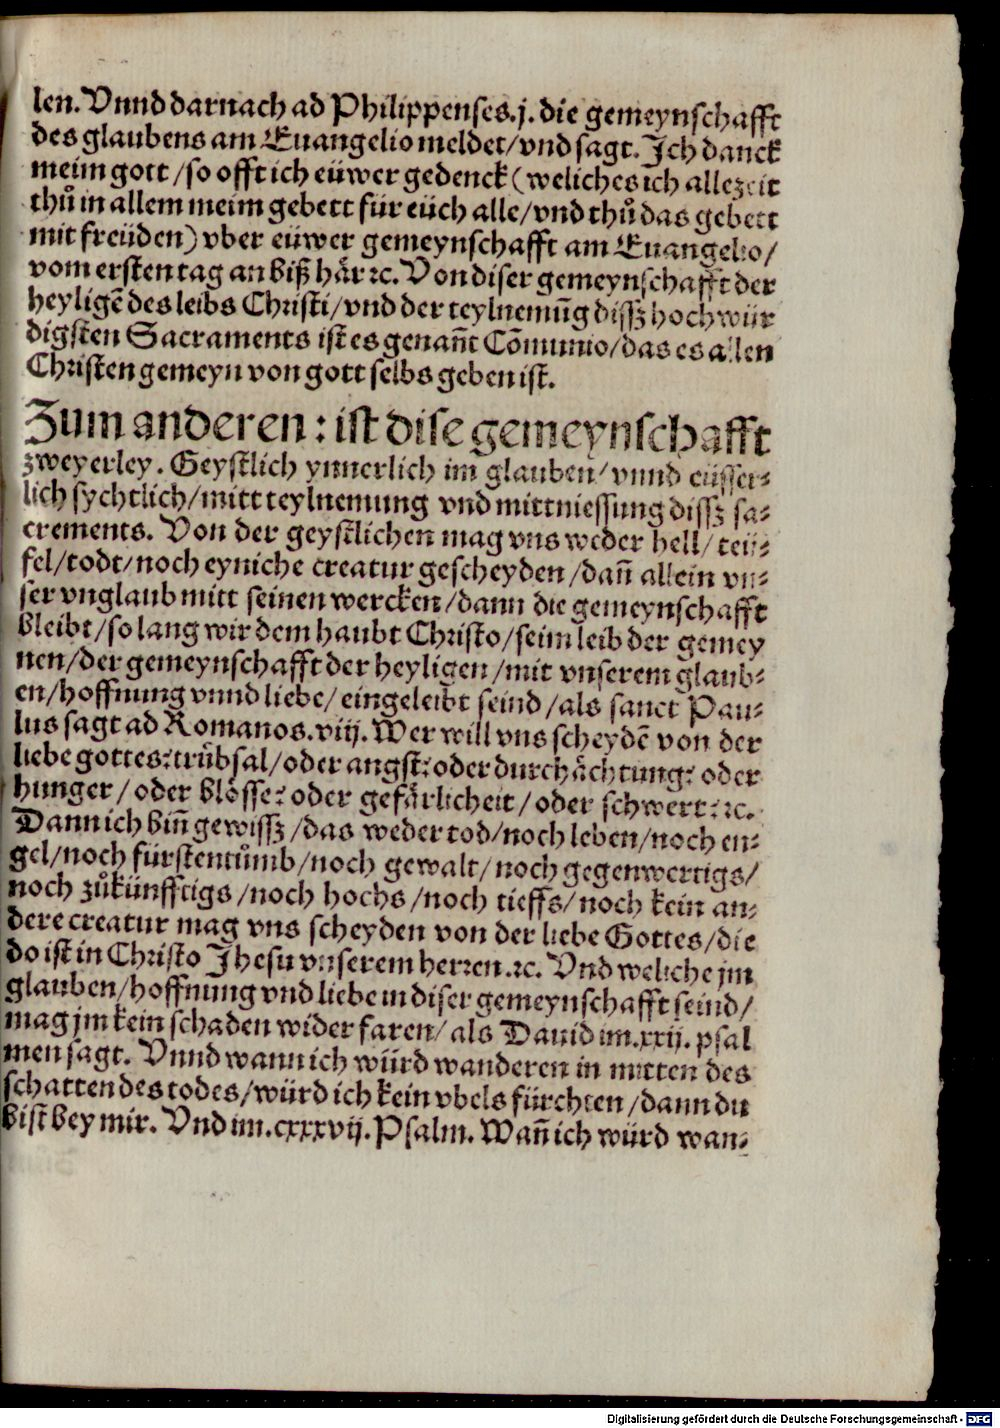 len. Vnnd darnach ad Philippenses.j. die gemeynschafft
des glaubens am Euangelio meldet/vnd sagt. Ich danck
meim gott/so offt ich eüwer gedenck (weliches ich allezeit
thů in allem meim gebett für eüch alle/vnd thů das gebett
mit freüden) vber eüwer gemeynschafft am Euangelio/
vom ersten tag an biß här ꝛc. Von diser gemeynschafft der
heyligē des leibs Christi/vnd der teylnemūg disſz hochwür
digsten Sacraments ist es genañt Cōmunio/das es allen
Christen gemeyn von gott selbs geben ist.
Zum anderen: ist dise gemeynschafft
zweyerley. Geystlich ynnerlich im glauben/vnnd eüsser⸗
lich sychtlich/mitt teylnemung vnd mittniessung disſz sa⸗
crements. Von der geystlichen mag vns weder hell/teü⸗
fel/todt/noch eyniche creatur gescheyden/dañ allein vn⸗
ser vnglaub mitt seinen wercken/dann die gemeynschafft
bleibt/so lang wir dem haubt Christo/seim leib der gemey
nen/der gemeynschafft der heyligen/mit vnserem glaub⸗
en/hoffnung vnnd liebe/eingeleibt seind/als sanct Pau⸗
lus sagt ad Romanos.viij. Wer will vns scheydē von der
liebe gottes: trübsal/oder angst: oder durchächtung: oder
hunger/oder blösse: oder gefärlicheit/oder schwert: ꝛc.
Dann ich biñ gewisſz/das weder tod/noch leben/noch en⸗
gel/noch fürstentůmb/noch gewalt/noch gegenwertigs/
noch zůkünfftigs/noch hochs/noch tieffs/noch kein an⸗
dere creatur mag vns scheyden von der liebe Gottes/die
do ist in Christo Jhesu vnserem herren.ꝛc. Vnd weliche jm
glauben/hoffnung vnd liebe in diser gemeynschafft seind/
mag jm kein schaden widerfaren/als Dauid im.xxij. psal
men sagt. Vnnd wann ich würd wanderen in mitten des
schatten des todes/würd ich kein vbels fürchten/dann du
bist bey mir. Vnd im.cxxxvij. Psalm. Wañ ich würd wan⸗
Digitalisierung gefördert durch die Deutsche Forschungsgemeinschaft - DFG